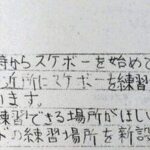 時からスケボーを始めて
近所にスケボーを練習
ります。
練習できる場所がほしい
の練習場所を新設